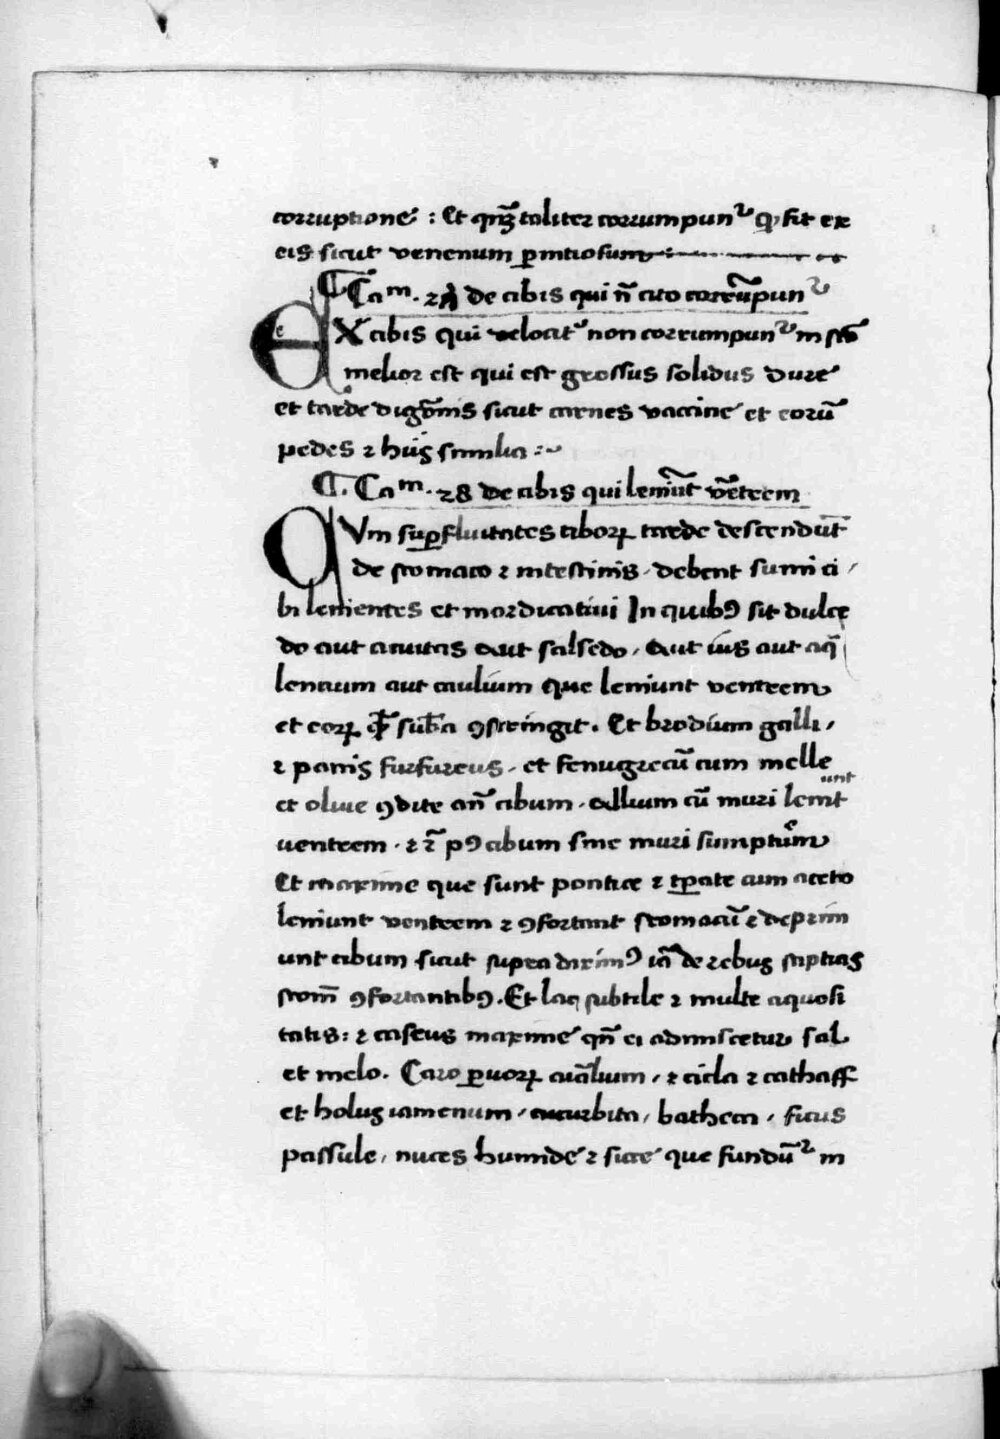 corruptione : Et qn̄ꝫ taliter corrumpunᷣ ꝙ fit ex
eis sicut venenum ꝑnitiosum
¶ Caᵐ. 27 de cibis qui n̄ cito corrūpunᷣ
EX cibis qui velocitᷣ non corrumpunᷣ in stō
melior est qui est grossus solidus dure
et tarde digōnis sicut carnes vaccine et eorū
pedes ⁊ huiꝰ similia :~
¶. Caᵐ. 28 de cibis qui leniūt vētrem
QVm suꝑfluitates ciboꝝ tarde descendūt
de stomaco ⁊ intestinis, debent sumi ci,
bi lenientes et mordicativi In quibꝰ sit dulce
do aut acuitas aut salsedo, aut iꝰ aut aq̄
lentium aut caulium que leniunt ventrem
et eoꝝ sub̄a ꝯstringit. Et brodium galli,
⁊ panis furfureus, et fenugrecū cum melle
et olive ꝯdite an̄ cibum. allium cū muri leniunt
ventrem. ⁊ pꝰ cibum sine muri sumptum
Et maxime que sunt pontice ⁊ tꝑate cum aceto
leniunt ventrem ⁊ ꝯfortant stomacū ⁊ deprim
unt cibum sicut supra diximꝰ iā de rebus stipticis
stom̄ ꝯfortantibꝰ. Et lac subtile ⁊ multe aquosi
tatis: ⁊ caseus maxime qn̄ ei admiscetur sal
et melo. Caro ꝑvoꝝ aīalium, ⁊ cicla ⁊ cathaff
et holus iamenum, cucurbita, batheca, ficus
passule, nuces humide ⁊ sicce que fundūᷣ in